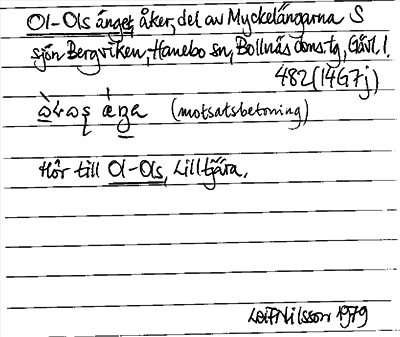 Ol-Ols änget, åker, del av Myckelängarna S
sjön Bergviken, Hanebo sn, Bollnäs doms.tg, Gävl. l.
482 (14G7j)
(motsatsbetoning)
Hör till Ol-Ols, Lilltjära.
Leif Nilsson 1979